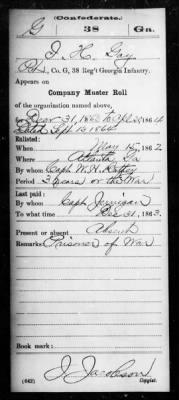 (Confederate.)
G 38 Ga.
J. H. Gay
Co. G, 38 Reg't Georgia Infantry.
Appears on
Company Muster Roll
of the organization named above,
for Decr 31, 1863 to Apl 30, 1864
dated Sept 13 1864
Enlisted:
When May 15, 1862
Where Atlanta, Ga
By whom Capt. W. H.
Period 3 years or the War
Last paid:
By whom Capt. Jernigan
To what time Dec 31, 1863
Present or absent Absent
Remarks: Prisoner of War
Book mark:
J. Jacobson
(642) Copyist.